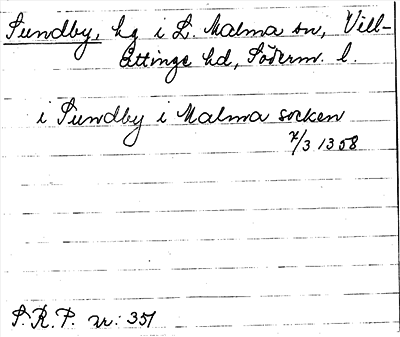 Sundby, hg i L. Malma sn, Vill-
åttinge hd, Söderm. l.
i Sundby i Malma socken
7/3 1358
S.R.P. nr: 351